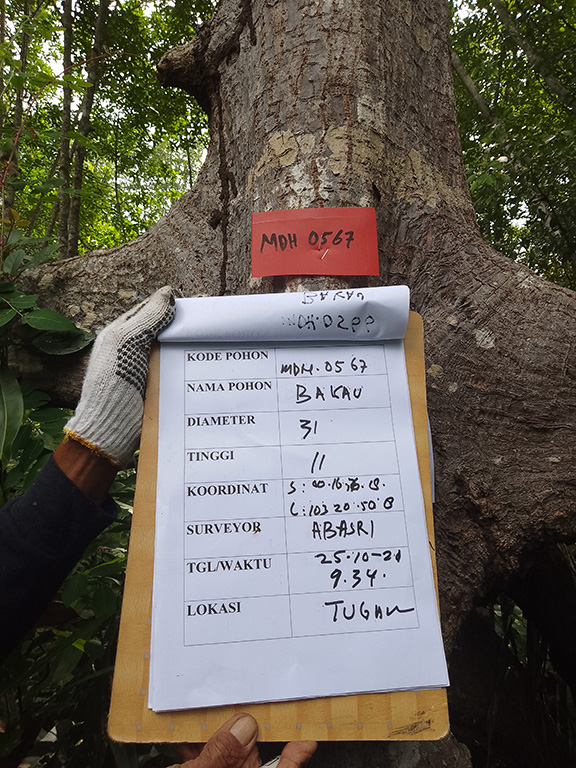 MDH 0567
KODE POHON MDH.0567
NAMA POHON BAKAU
DIAMETER 31
TINGGI 11
KOORDINAT
103 20.50 8
SURVEYOR ABASRI
TGL/WAKTU 25-10-21
9.34.
LOKASI TUGAU